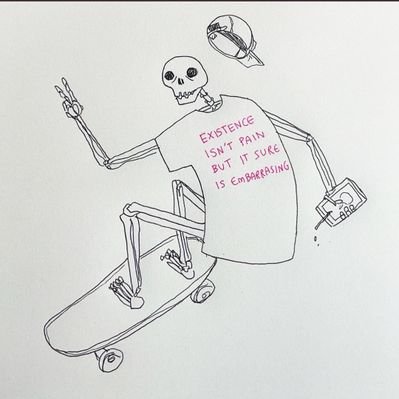 EXISTENCE
ISN'T PAIN
BUT IT SURE
IS EMBARRASING